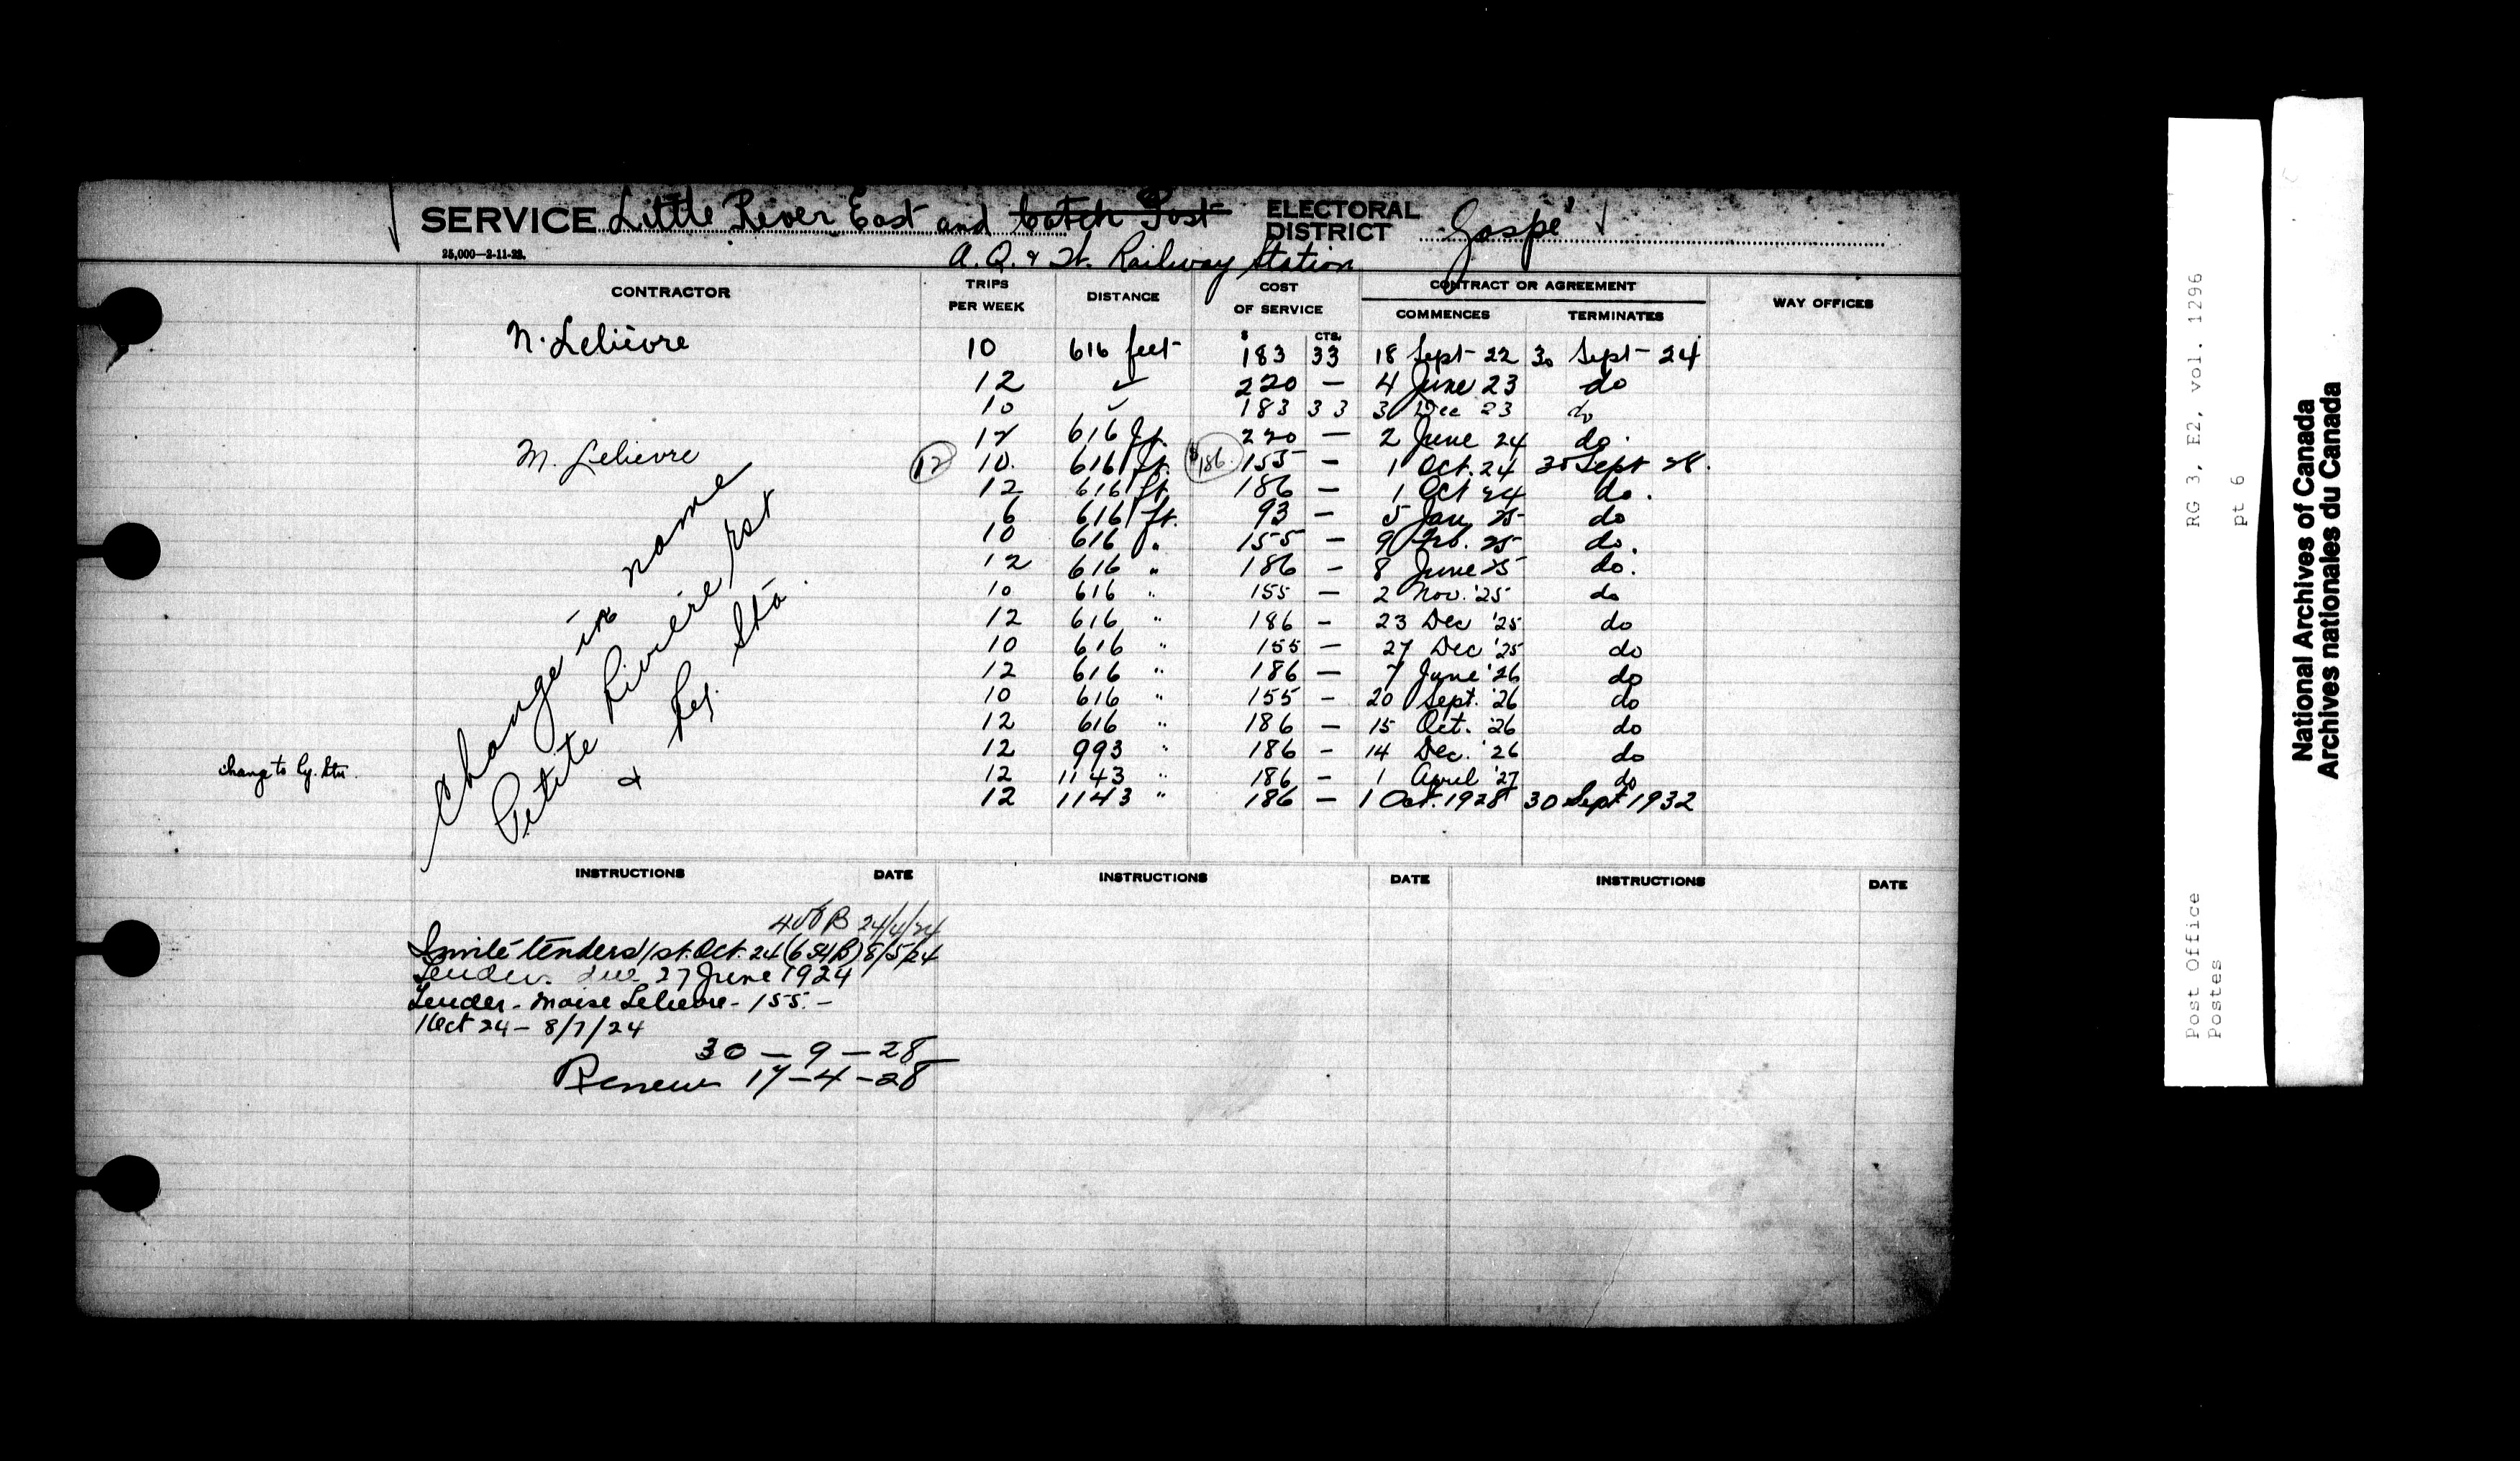 SERVICE Little River East and Catch Post ELECTORAL DISTRICT Gaspé
25,000—2-11-22.
A. Q. & W. Railway Station
CONTRACTOR TRIPS PER WEEK DISTANCE COST OF SERVICE CONTRACT OR AGREEMENT WAY OFFICES
COMMENCES TERMINATES
$ CTS.
N. Lelièvre 10 616 feet 183 33 18 Sept- 22 30 Sept- 24
12 " 220 — 4 June 23 do
10 " 183 33 3 Dec 23 do
12 616 ft. 220 — 2 June 24 do.
M. Lelievre 12 10. 616 ft. $186. 155 — 1 Oct. 24 30 Sept 28.
12 616 ft. 186 — 1 Oct 24 do.
6 616 ft. 93 — 5 Jan 25 do
10 616 " 155 — 9 Feb. 25 do.
12 616 " 186 — 8 June 25 do.
10 616 " 155 — 2 Nov. '25 do
12 616 " 186 — 23 Dec '25 do
10 616 " 155 — 27 Dec '25 do
12 616 " 186 — 7 June '26 do
10 616 " 155 — 20 Sept. '26 do
12 616 " 186 — 15 Oct. '26 do
12 993 " 186 — 14 Dec. '26 do
12 1143 " 186 — 1 April '27 do
12 1143 " 186 — 1 Oct. 1928 30 Sept 1932
Change in name
Petite Rivière Est
& Ry. Sta.
change to Ry. Stn.
INSTRUCTIONS DATE INSTRUCTIONS DATE INSTRUCTIONS DATE
24/4/24
Invite tenders 1st. Oct. 24 (654B) 8/5/24
Tenders due 27 June 1924
Tender - Moise Lelievre - 155. —
1 Oct 24 — 8/7/24
30 — 9 — 28
Renew 17 — 4 — 28
RG 3, E2, vol. 1296
pt 6
Post Office
Postes
National Archives of Canada
Archives nationales du Canada